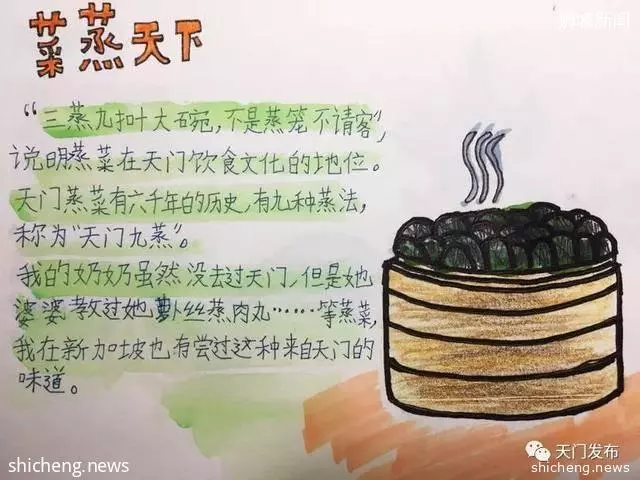 狮城新闻
菜蒸天下
“三蒸九扣十大碗，不是蒸笼不请客”，
说明蒸菜在天门饮食文化的地位。
天门蒸菜有六千年的历史，有九种蒸法，
称为“天门九蒸”。
我的奶奶虽然没去过天门，但是她
婆婆教过她萝卜丝蒸肉丸……等蒸菜，
我在新加坡也有尝过这种来自天门的
味道。
天门发布
shicheng.news
shicheng.news